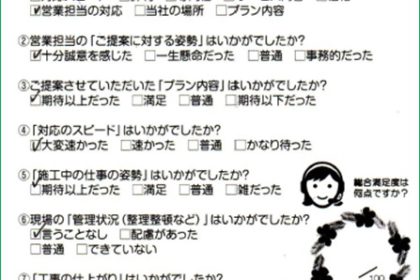 ☑営業担当の対応 □当社の場所 □プラン内容
②営業担当の「ご提案に対する姿勢」はいかがでしたか？
☑十分誠意を感じた □一生懸命だった □普通 □事務的だった
③ご提案させていただいた「プラン内容」はいかがでしたか？
☑期待以上だった □満足 □普通 □期待以下だった
④「対応のスピード」はいかがでしたか？
☑大変速かった □速かった □普通 □かなり待った
⑤「施工中の仕事の姿勢」はいかがでしたか？
☑期待以上だった □満足 □普通 □雑だった
総合満足度は
何点ですか？
⑥現場の「管理状況（整理整頓など）」はいかがでしたか？
☑言うことなし □配慮があった
□普通 □できていない
／100
⑦「工事の仕上がり」はいかがでしたか？